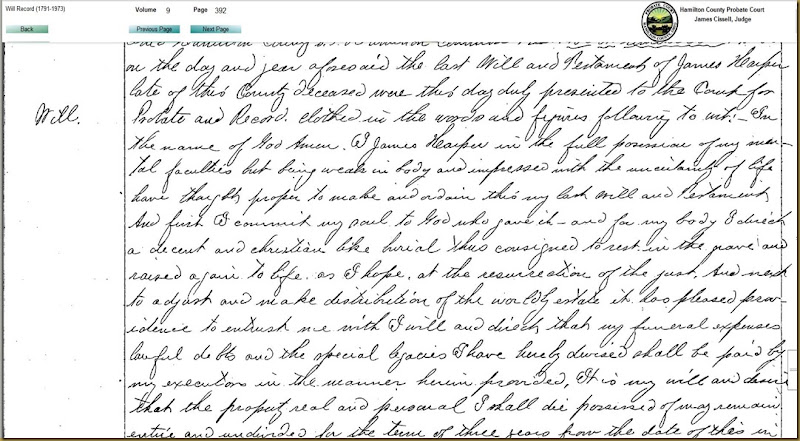 Will Record (1791-1973)
Volume 9 Page 392
Hamilton County Probate Court
James Cissell, Judge
Back
Previous Page
Next Page
on the day and year aforesaid the last Will and Testament of James Harper
late of this County deceased were this day duly presented to the Court for
Will.
Probate and Record. clothed in the words and figures following to wit:- In
the name of God Amen. I James Harper in the full possession of my men-
tal faculties but being weak in body and impressed with the uncertainty of life
have thought proper to make and ordain this my last Will and Testament,
And first I commit my soul to God who gave it- and for my body I direct
a decent and christian like burial thus consigned to rest in the grave and
raised again to life. as I hope, at the resurrection of the just, And next
to adjust and make distribution of the worldly estate it has pleased prov-
idence to entrust me with I will and direct that my funeral expenses
lawful debts and the special legacies I have herely devised shall be paid by
my executors in the manner herein provided, It is my will and desire
that the property real and personal I shall die possessed of may remain
entire and undivided for the term of three years from the date of this in